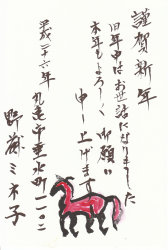 謹賀新年
旧年中はお世話になりました
本年もよろしく御願い
申し上げます
平成二十六年
丸亀市垂水町一一〇二
野藤ミネ子